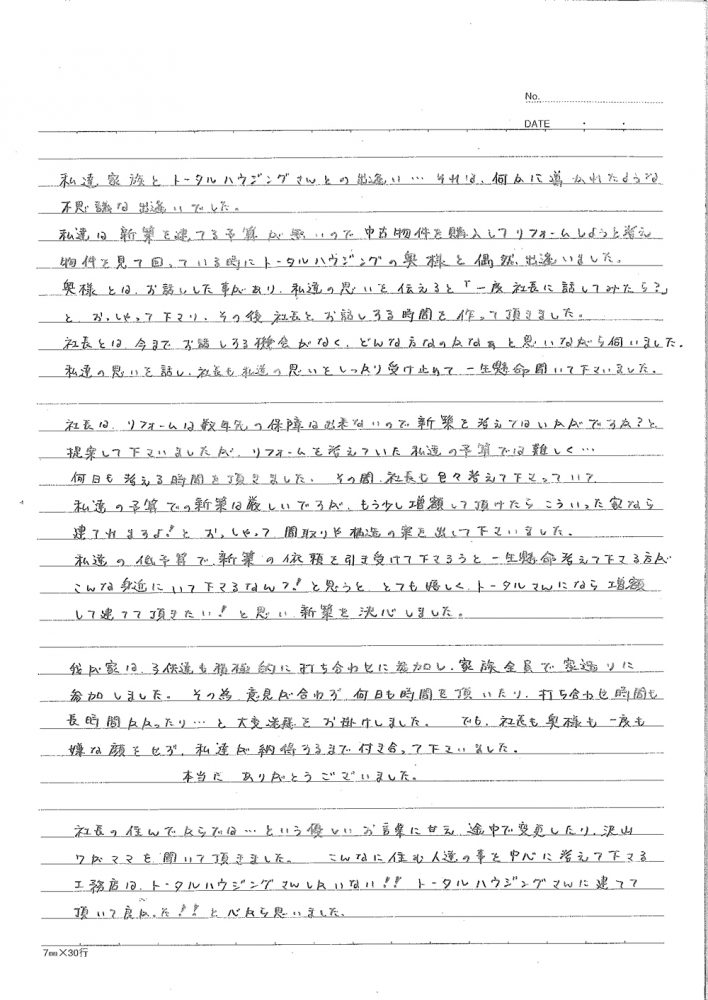 No.
DATE ・ ・
私達家族とトータルハウジングさんとの出逢い… それは、何かに導かれたような
不思議な出逢いでした。
私達は新築を建てる予算が無いので中古物件を購入してリフォームしようと考え
物件を見て回っている時にトータルハウジングの奥様と偶然、出逢いました。
奥様とは、お話しした事があり、私達の思いを伝えると「一度社長に話してみたら?」
と、おっしゃって下さり、その後社長とお話しする時間を作って頂きました。
社長とは、今までお話しする機会がなく、どんな方なのかなぁと思いながら伺いました。
私達の思いを話し、社長も私達の思いをしっかり受け止めて一生懸命聞いて下さいました。
社長は、リフォームは数年先の保障は出来ないので新築を考えてはいかがですか?と
提案して下さいましたが、リフォームを考えていた私達の予算では難しく…
何日も考える時間を頂きました。その間、社長も色々考えて下さっていて、
私達の予算での新築は厳しいですが、もう少し増額して頂けたらこういった家なら
建てれますよ!と、おっしゃって間取りや構造の案を出して下さいました。
私達の低予算で新築の依頼を引き受けて下さろうと一生懸命考えて下さる方が
こんな身近にいて下さるなんて?!と思うと、とても嬉しく、トータルさんになら増額
して建てて頂きたい!と思い新築を決心しました。
我が家は、子供達も積極的に打ち合わせに参加し、家族全員で家造りに
参加しました。その為意見が合わず何日も時間を頂いたり、打ち合わせ時間も
長時間かかったり…と大変迷惑をお掛けしました。でも、社長も奥様も一度も
嫌な顔をせず、私達が納得するまで付き合って下さいました。
本当に ありがとうございました。
社長の住んでからでは…という優しいお言葉に甘え、途中で変更したり、沢山
ワガママを聞いて頂きました。こんなに住む人達の事を中心に考えて下さる
工務店は、トータルハウジングさんしかいない!! トータルハウジングさんに建てて
頂いて良かった!!と心から思いました。
7㎜×30行